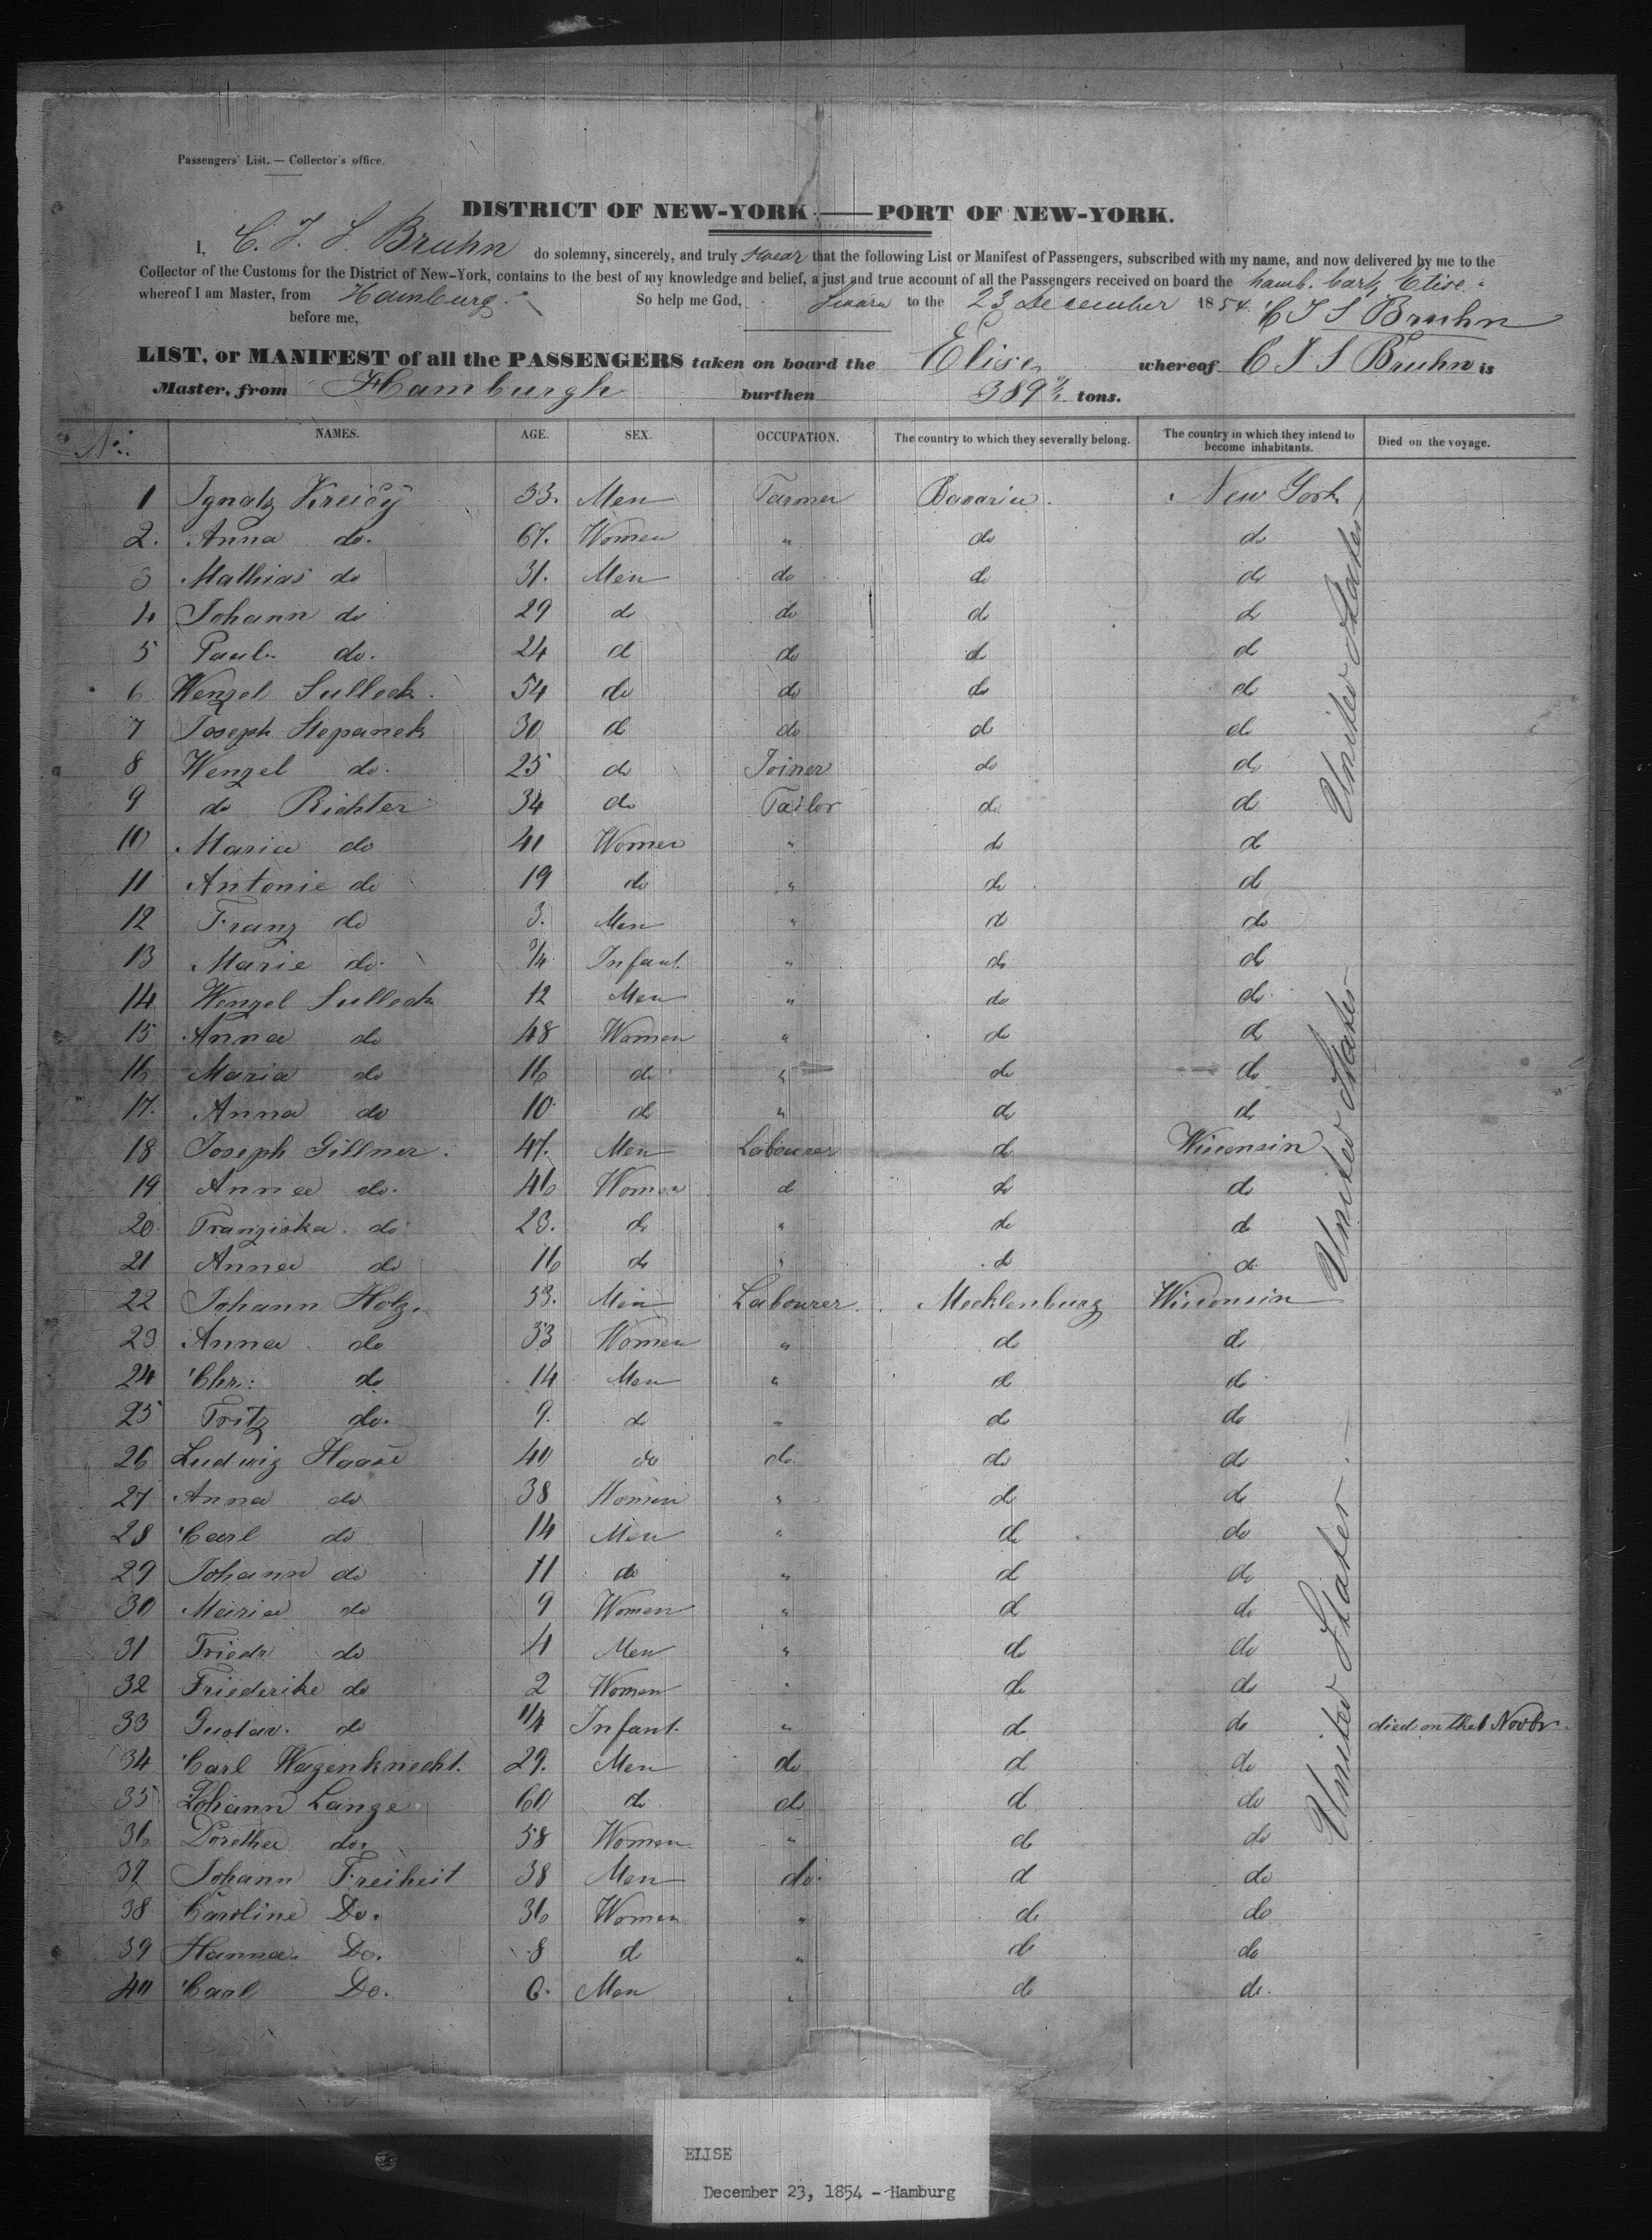 Passengers' List. — Collector's office.
DISTRICT OF NEW-YORK — PORT OF NEW-YORK.
I, C. J. S. Bruhn do solemny, sincerely, and truly swear that the following List or Manifest of Passengers, subscribed with my name, and now delivered by me to the
Collector of the Customs for the District of New-York, contains to the best of my knowledge and belief, a just and true account of all the Passengers received on board the hamb. bark Elise
whereof I am Master, from Hamburg. So help me God, to the 23 December 1854. C J S Bruhn
before me,
LIST, or MANIFEST of all the PASSENGERS taken on board the Elise whereof C J S Bruhn is
Master, from Hamburgh burthen 389 tons.
No. NAMES. AGE. SEX. OCCUPATION. The country to which they severally belong. The country in which they intend to become inhabitants. Died on the voyage.
1 Ignatz Kreicy 33. Men Farmer Bavaria. New York
2. Anna do. 67. Women " do do
3 Mathias do 31. Men do do do
4 Johann do 29 do do do do
5 Paul do. 24 d do do d
6 Wenzel Sulleck. 54 do do do d
7 Joseph Stepanek 30 d do do do
8 Wenzel do. 25 do Joiner do do
9 do Richter 34 do Tailor do d
10 Maria do 41 Women " do do
11 Antonie do 19 do " do d
12 Franz do 3. Men " do do
13 Marie do. 3/4 Infant. " do do
14 Wenzel Sulleck 12 Men " do do
15 Anna do 48 Women " do do
16 Maria do 16 do " do do
17. Anna do 10 do " do do
18 Joseph Gillner. 47. Men Labourer d Wisconsin
19 Anna do. 46 Women d do do
20. Franziska do 23. do " do do
21 Anna do 16 do " do do
22 Johann Holz. 53. Men Labourer. Mecklenburg Wisconsin
23 Anna do 53 Women " do do
24 Chr: do 14 Men " do do
25 Fritz do. 9. do " do do
26 Ludwig Haase 40 do do. do do
27 Anna do 38 Women " do do
28 Carl do 14 Men " do do
29 Johann do 11 do " d do
30 Maria do 9 Women " d do
31 Friedr do 4 Men " do do
32 Friederike do 2 Women " do do
33 Gustav. do 1/4 Infant. " do do died on the 1 Novbr.
34 Carl Wagenknecht. 29. Men do d do
35 Johann Lange 60 do do d do
36 Dorethea do. 58 Women " do do
37 Johann Freiheit 38 Men do. d do
38 Caroline Do. 36 Women " do do
39 Hanna Do. 8 d " do do
40 Carl Do. 6. Men " do do.
United States
United States
United States
ELISE
December 23, 1854 - Hamburg